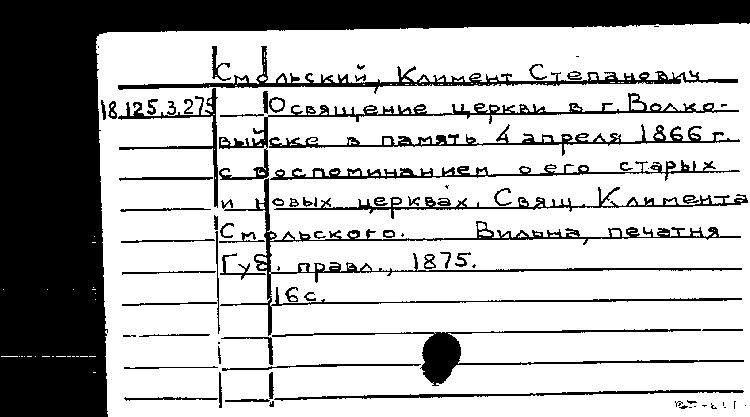 Смольский, Климент Степанович
18.125.3.275 Освящение церкви в г. Волко-
выйске в память 4 апреля 1866 г.
с воспоминанием о его старых
и новых церквах. Свящ. Климента
Смольского. Вильна, печатня
Губ. правл., 1875.
16 с.